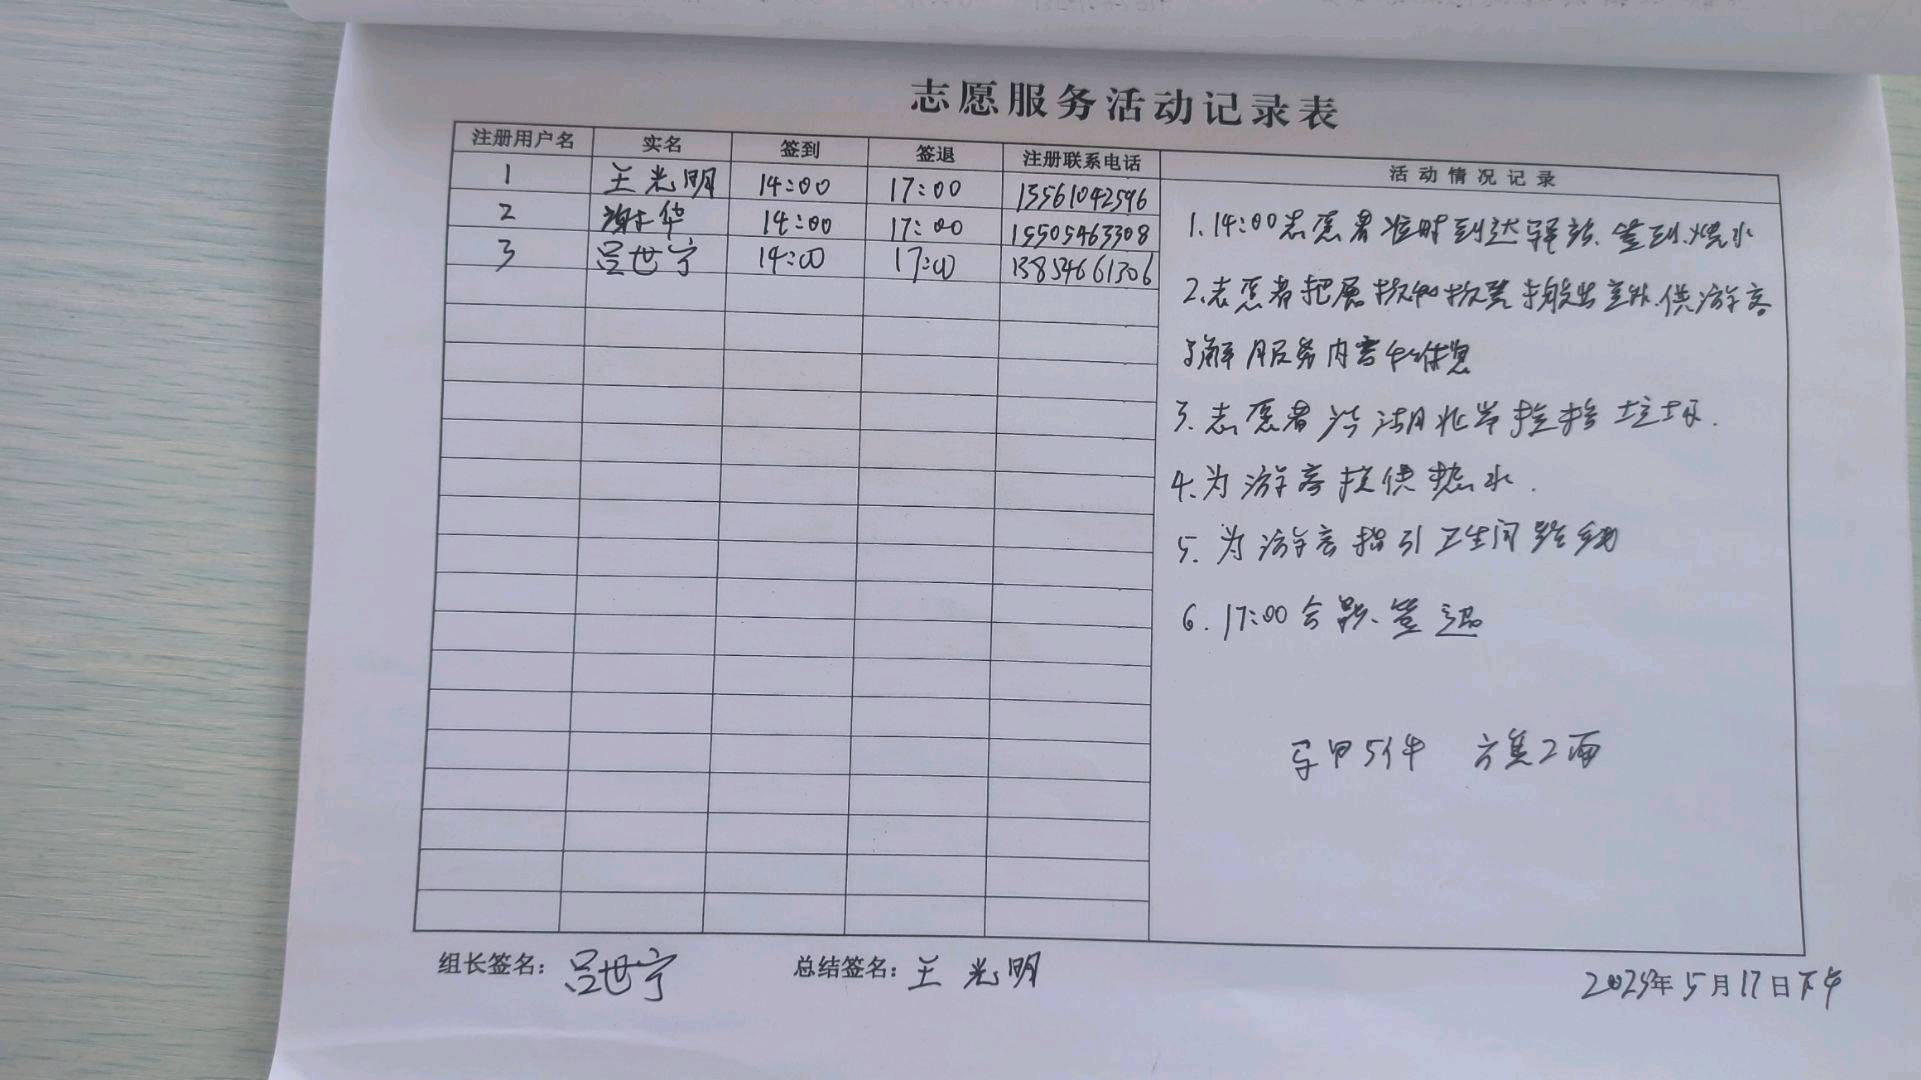 志愿服务活动记录表
注册用户名 实名 签到 签退 注册联系电话 活动情况记录
1 王光明 14:00 17:00 13561042596
2 谢华 14:00 17:00 15505463308
3 吕世宁 14:00 17:00 13854661306
1.14:00志愿者准时到达驿站、签到、烧水
2、志愿者把展板和板凳搬出室外、供游客
了解服务内容和休息
3、志愿者沿湖北岸捡拾垃圾.
4、为游客提供热水.
5、为游客指引卫生间路线
6.17:00合影、签退
马甲5件 方巾2面
组长签名：吕世宁 总结签名：王光明
2025年5月17日下午